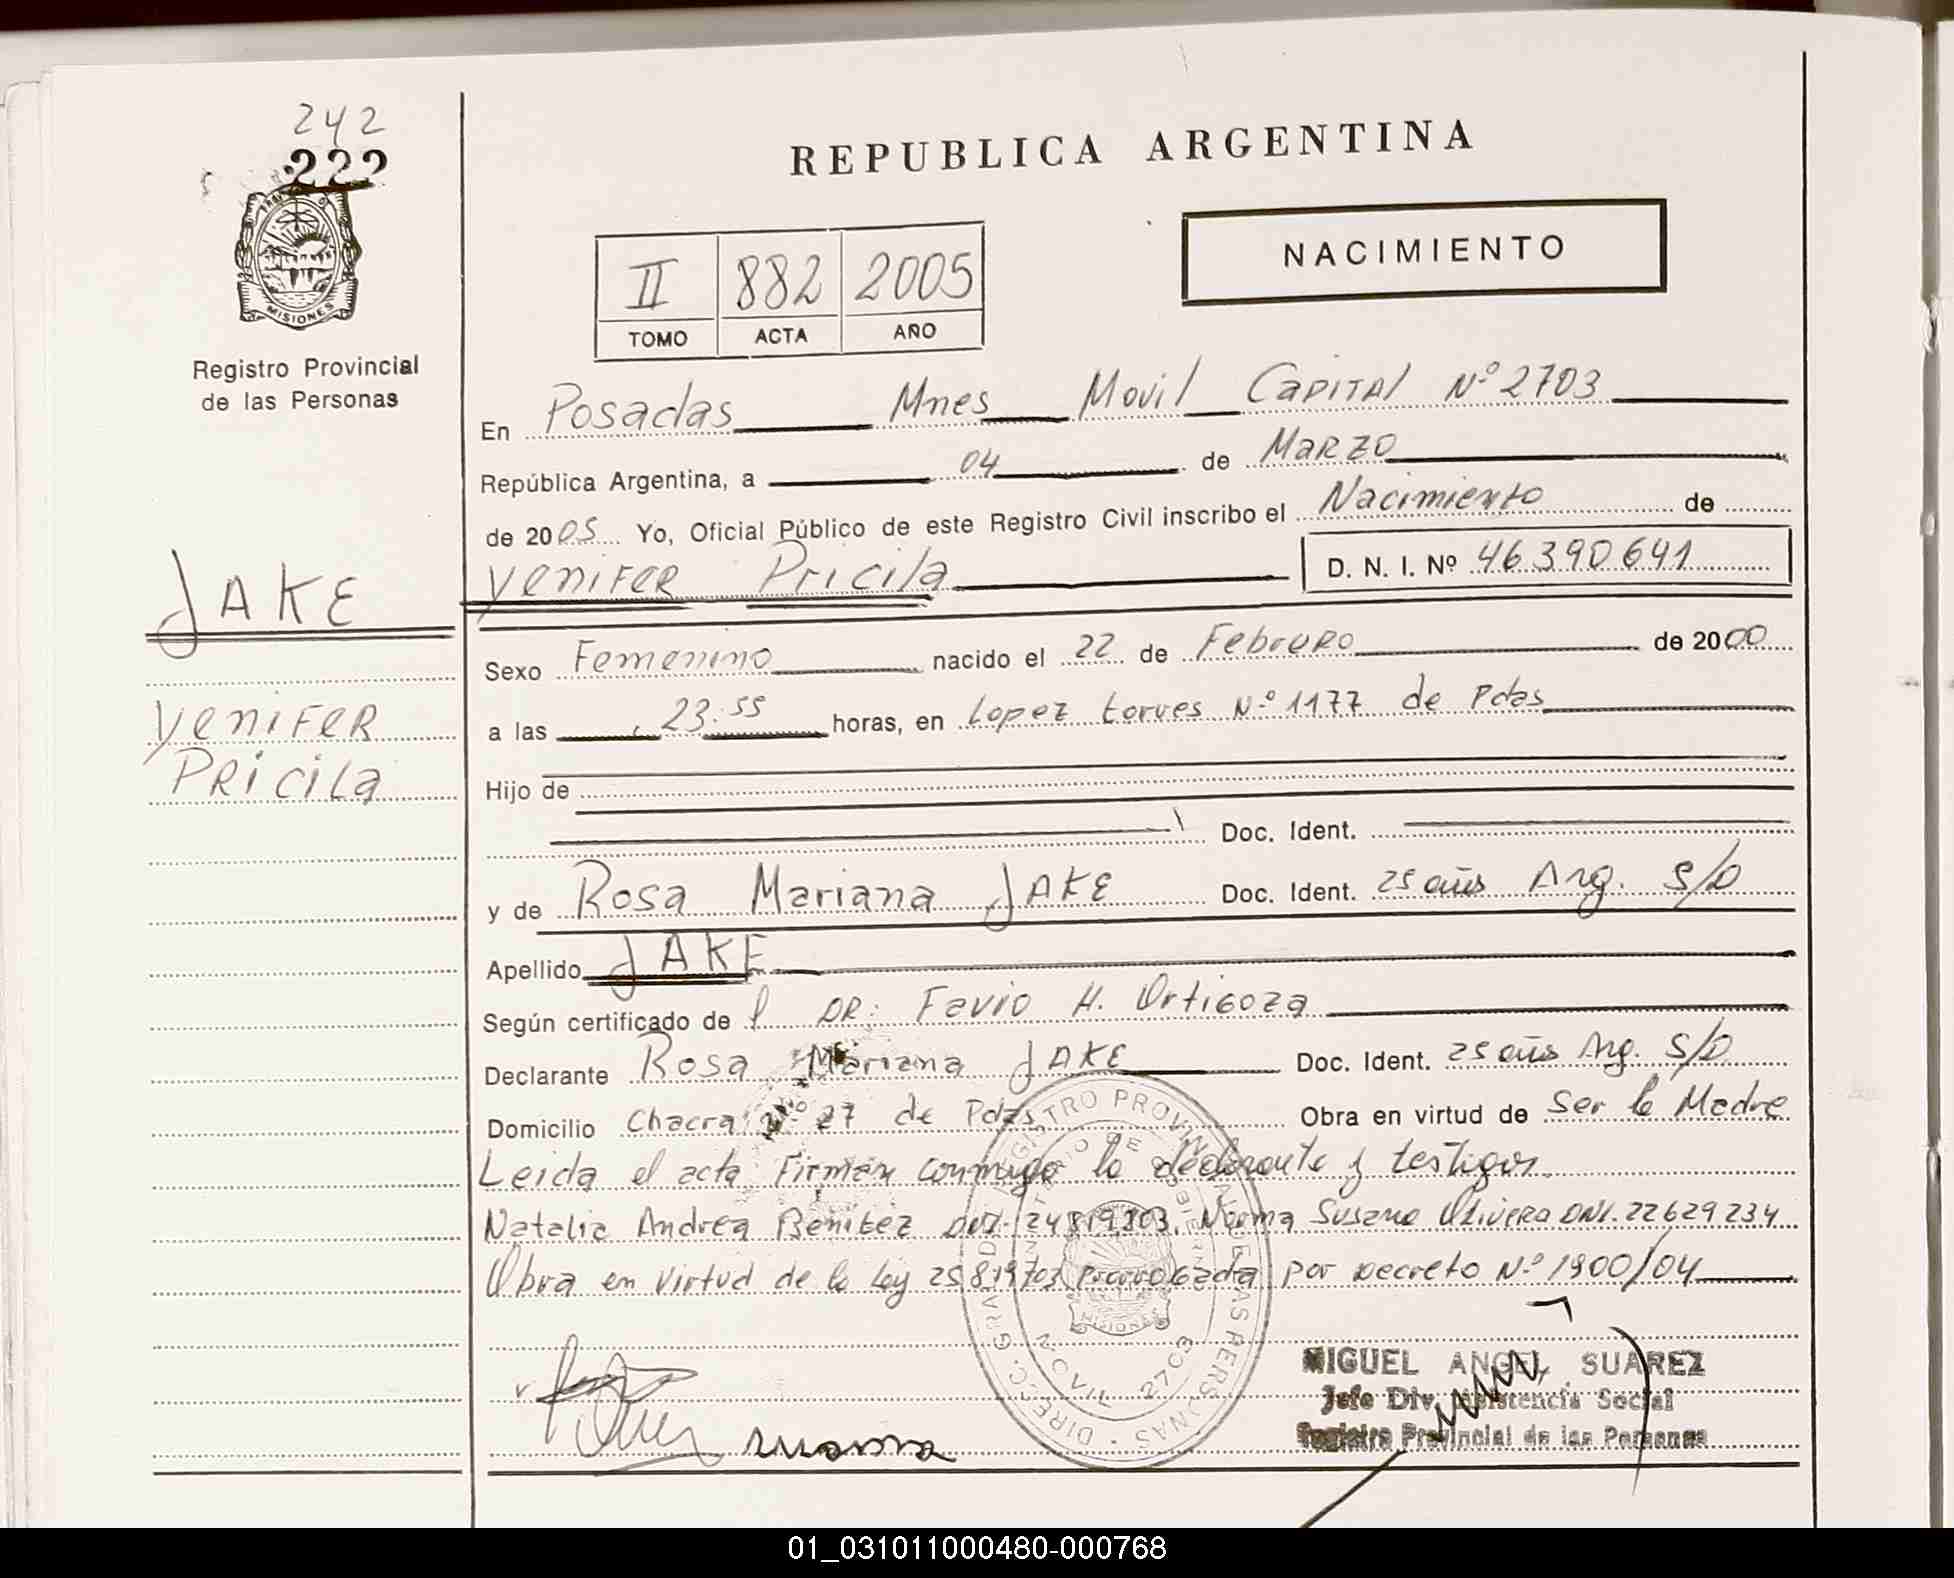 242
222
MISIONES
Registro Provincial
de las Personas
JAKE
YENIFER
PRICILA
REPUBLICA ARGENTINA
NACIMIENTO
II 882 2005
TOMO ACTA AÑO
En Posadas Mnes Movil CAPITAL Nº 2703
República Argentina, a 04 de MARZO
de 2005 Yo, Oficial Público de este Registro Civil inscribo el Nacimiento de
YENIFER Pricila D. N. I. Nº 46.390.641
Sexo Femenino nacido el 22 de Febrero de 2000
a las 23:55 horas, en Lopez torres Nº 1177 de Pdas
Hijo de
Doc. Ident.
y de Rosa Mariana JAKE Doc. Ident. 25 años Arg. S/D
Apellido JAKE
Según certificado de l DR: Favio H. Ortigoza
Declarante Rosa Mariana JAKE Doc. Ident. 25 años Arg. S/D
Domicilio Chacra Nº 27 de Pdas Obra en virtud de Ser la Madre
Leida el acta Firman conmigo la declarante y testigos
Natalia Andrea Benitez DNI. 24819303. Norma Susana Olivera DNI. 22629234
Obra en virtud de la Ley 25819703 por Decreto Nº 1900/04
DIRECC. GRAL. DE REGISTRO PROVINCIAL DE LAS PERSONAS
MINISTERIO DE GOBIERNO
MOVIL 2703
MISIONES
MIGUEL ANGEL SUAREZ
Jefe Div. Asistencia Social
Registro Provincial de las Personas
01_031011000480-000768